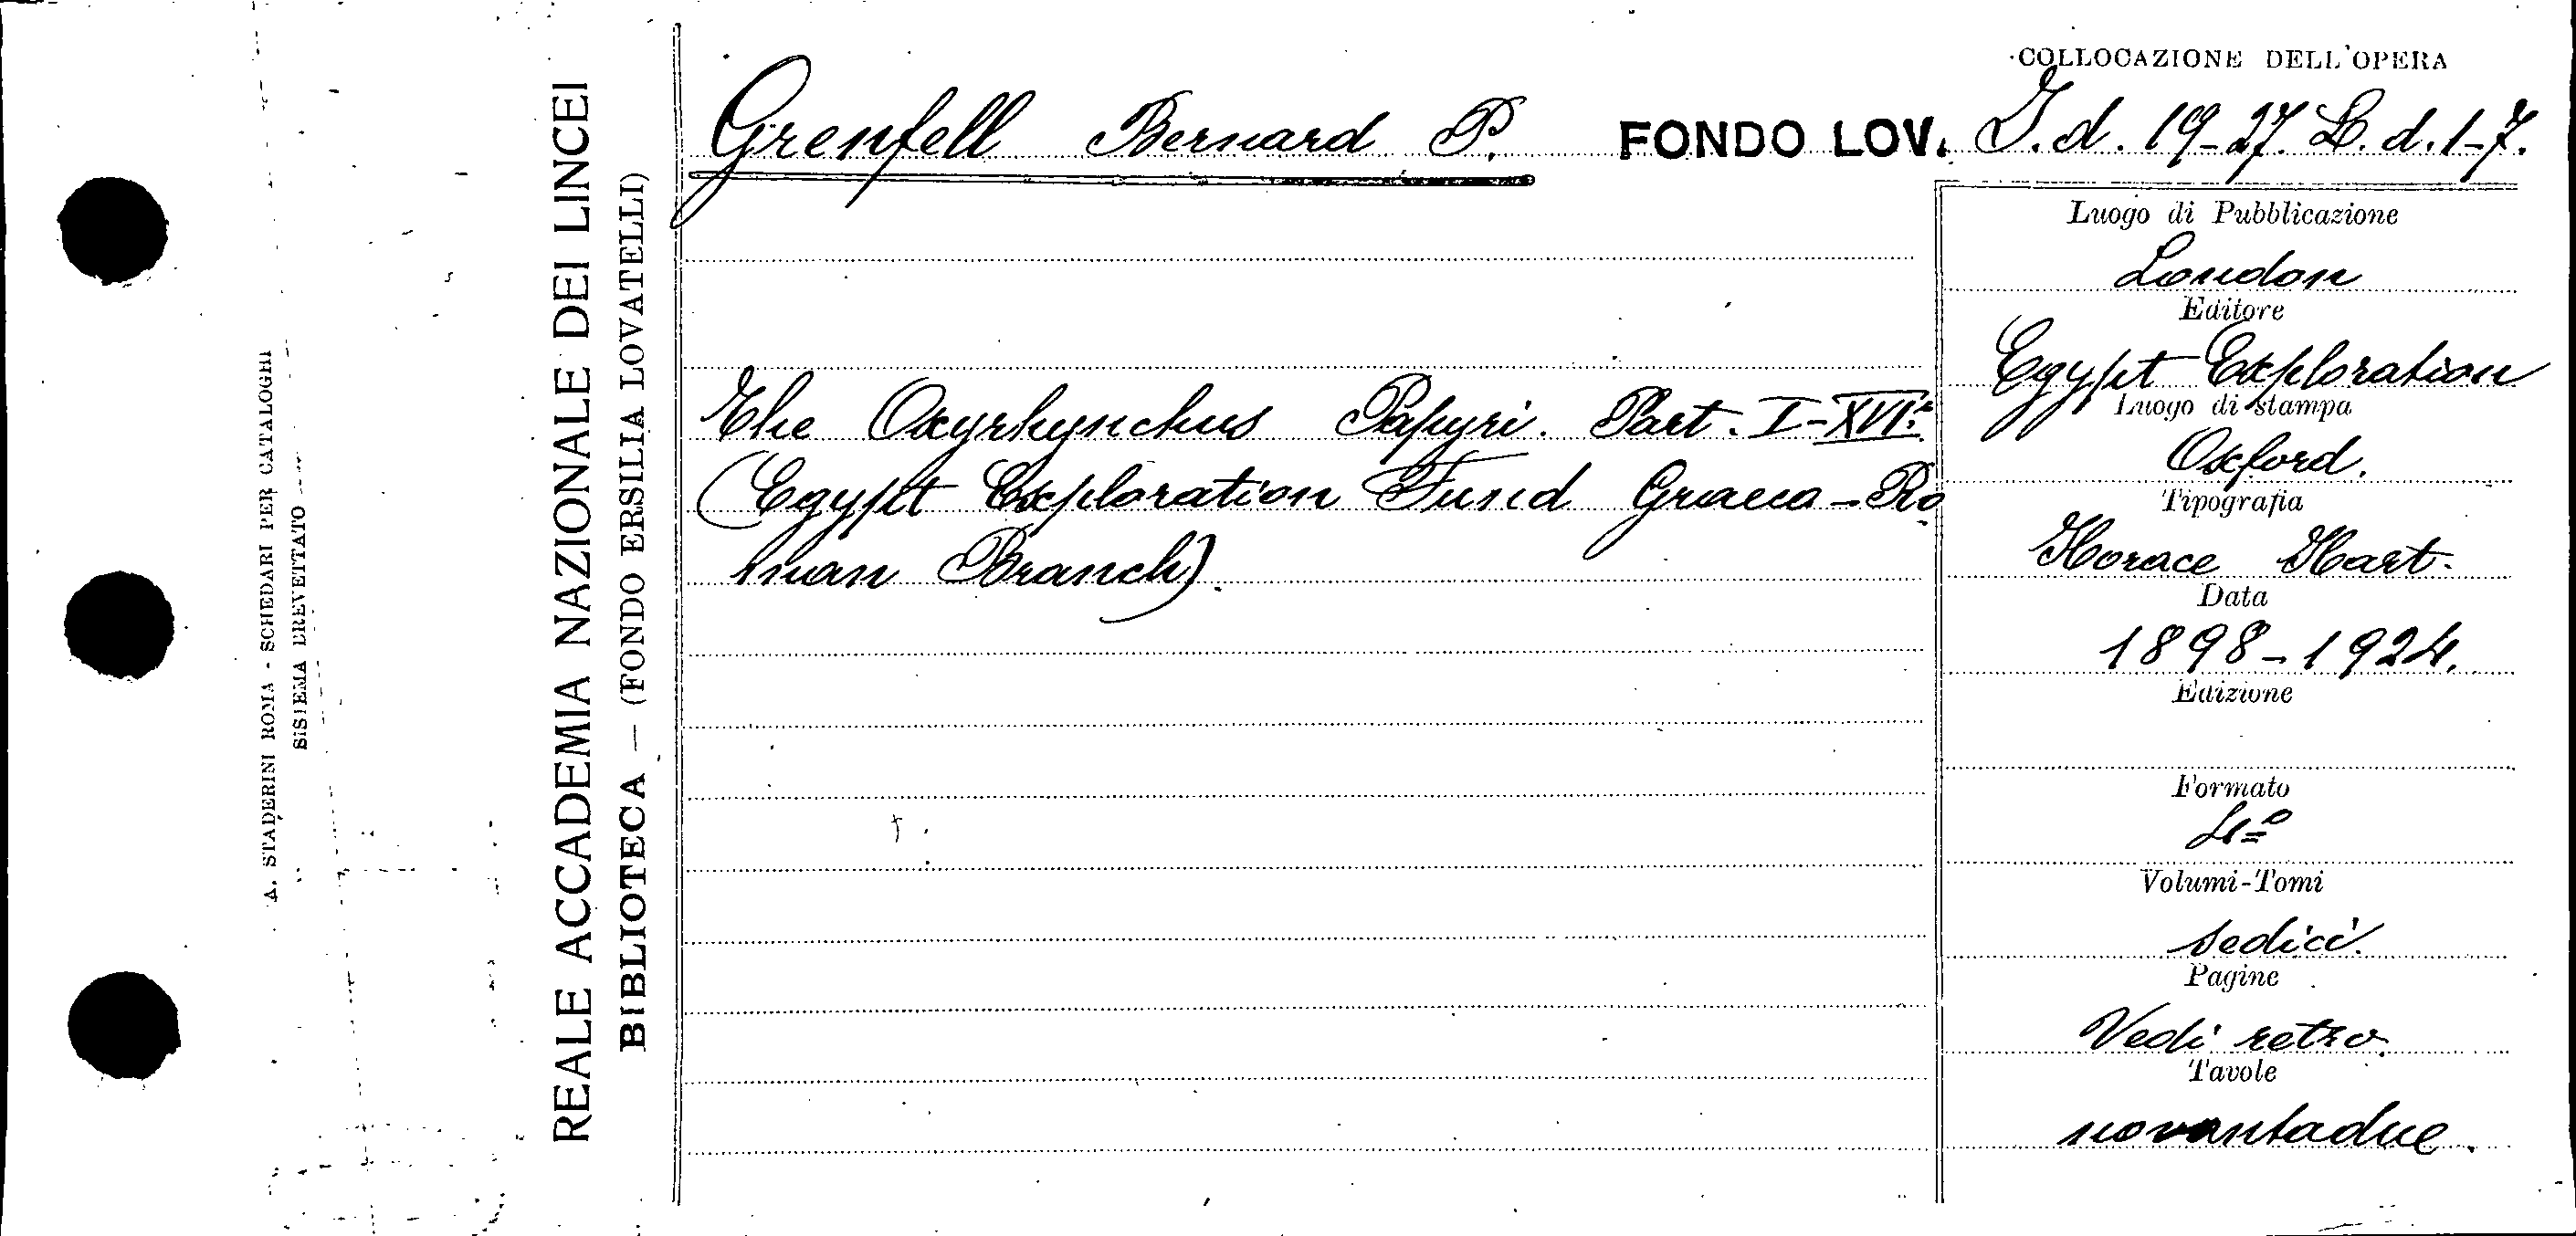 A. STADERINI ROMA - SCHEDARI PER CATALOGHI
SISTEMA BREVETTATO
REALE ACCADEMIA NAZIONALE DEI LINCEI
BIBLIOTECA — (FONDO ERSILIA LOVATELLI)
Grenfell Bernard P.
The Oxyrhynchus Papyri. Part. I-XVI.
(Egypt Exploration Fund Graeco-Ro
man Branch).
COLLOCAZIONE DELL'OPERA
FONDO LOV. I.d. 19-27. L.d. 1-7.
Luogo di Pubblicazione
London
Editore
Egypt Exploration
Luogo di stampa
Oxford.
Tipografia
Horace Hart.
Data
1898-1924.
Edizione
Formato
4º
Volumi-Tomi
sedici.
Pagine
Vedi retro.
Tavole
novantadue.